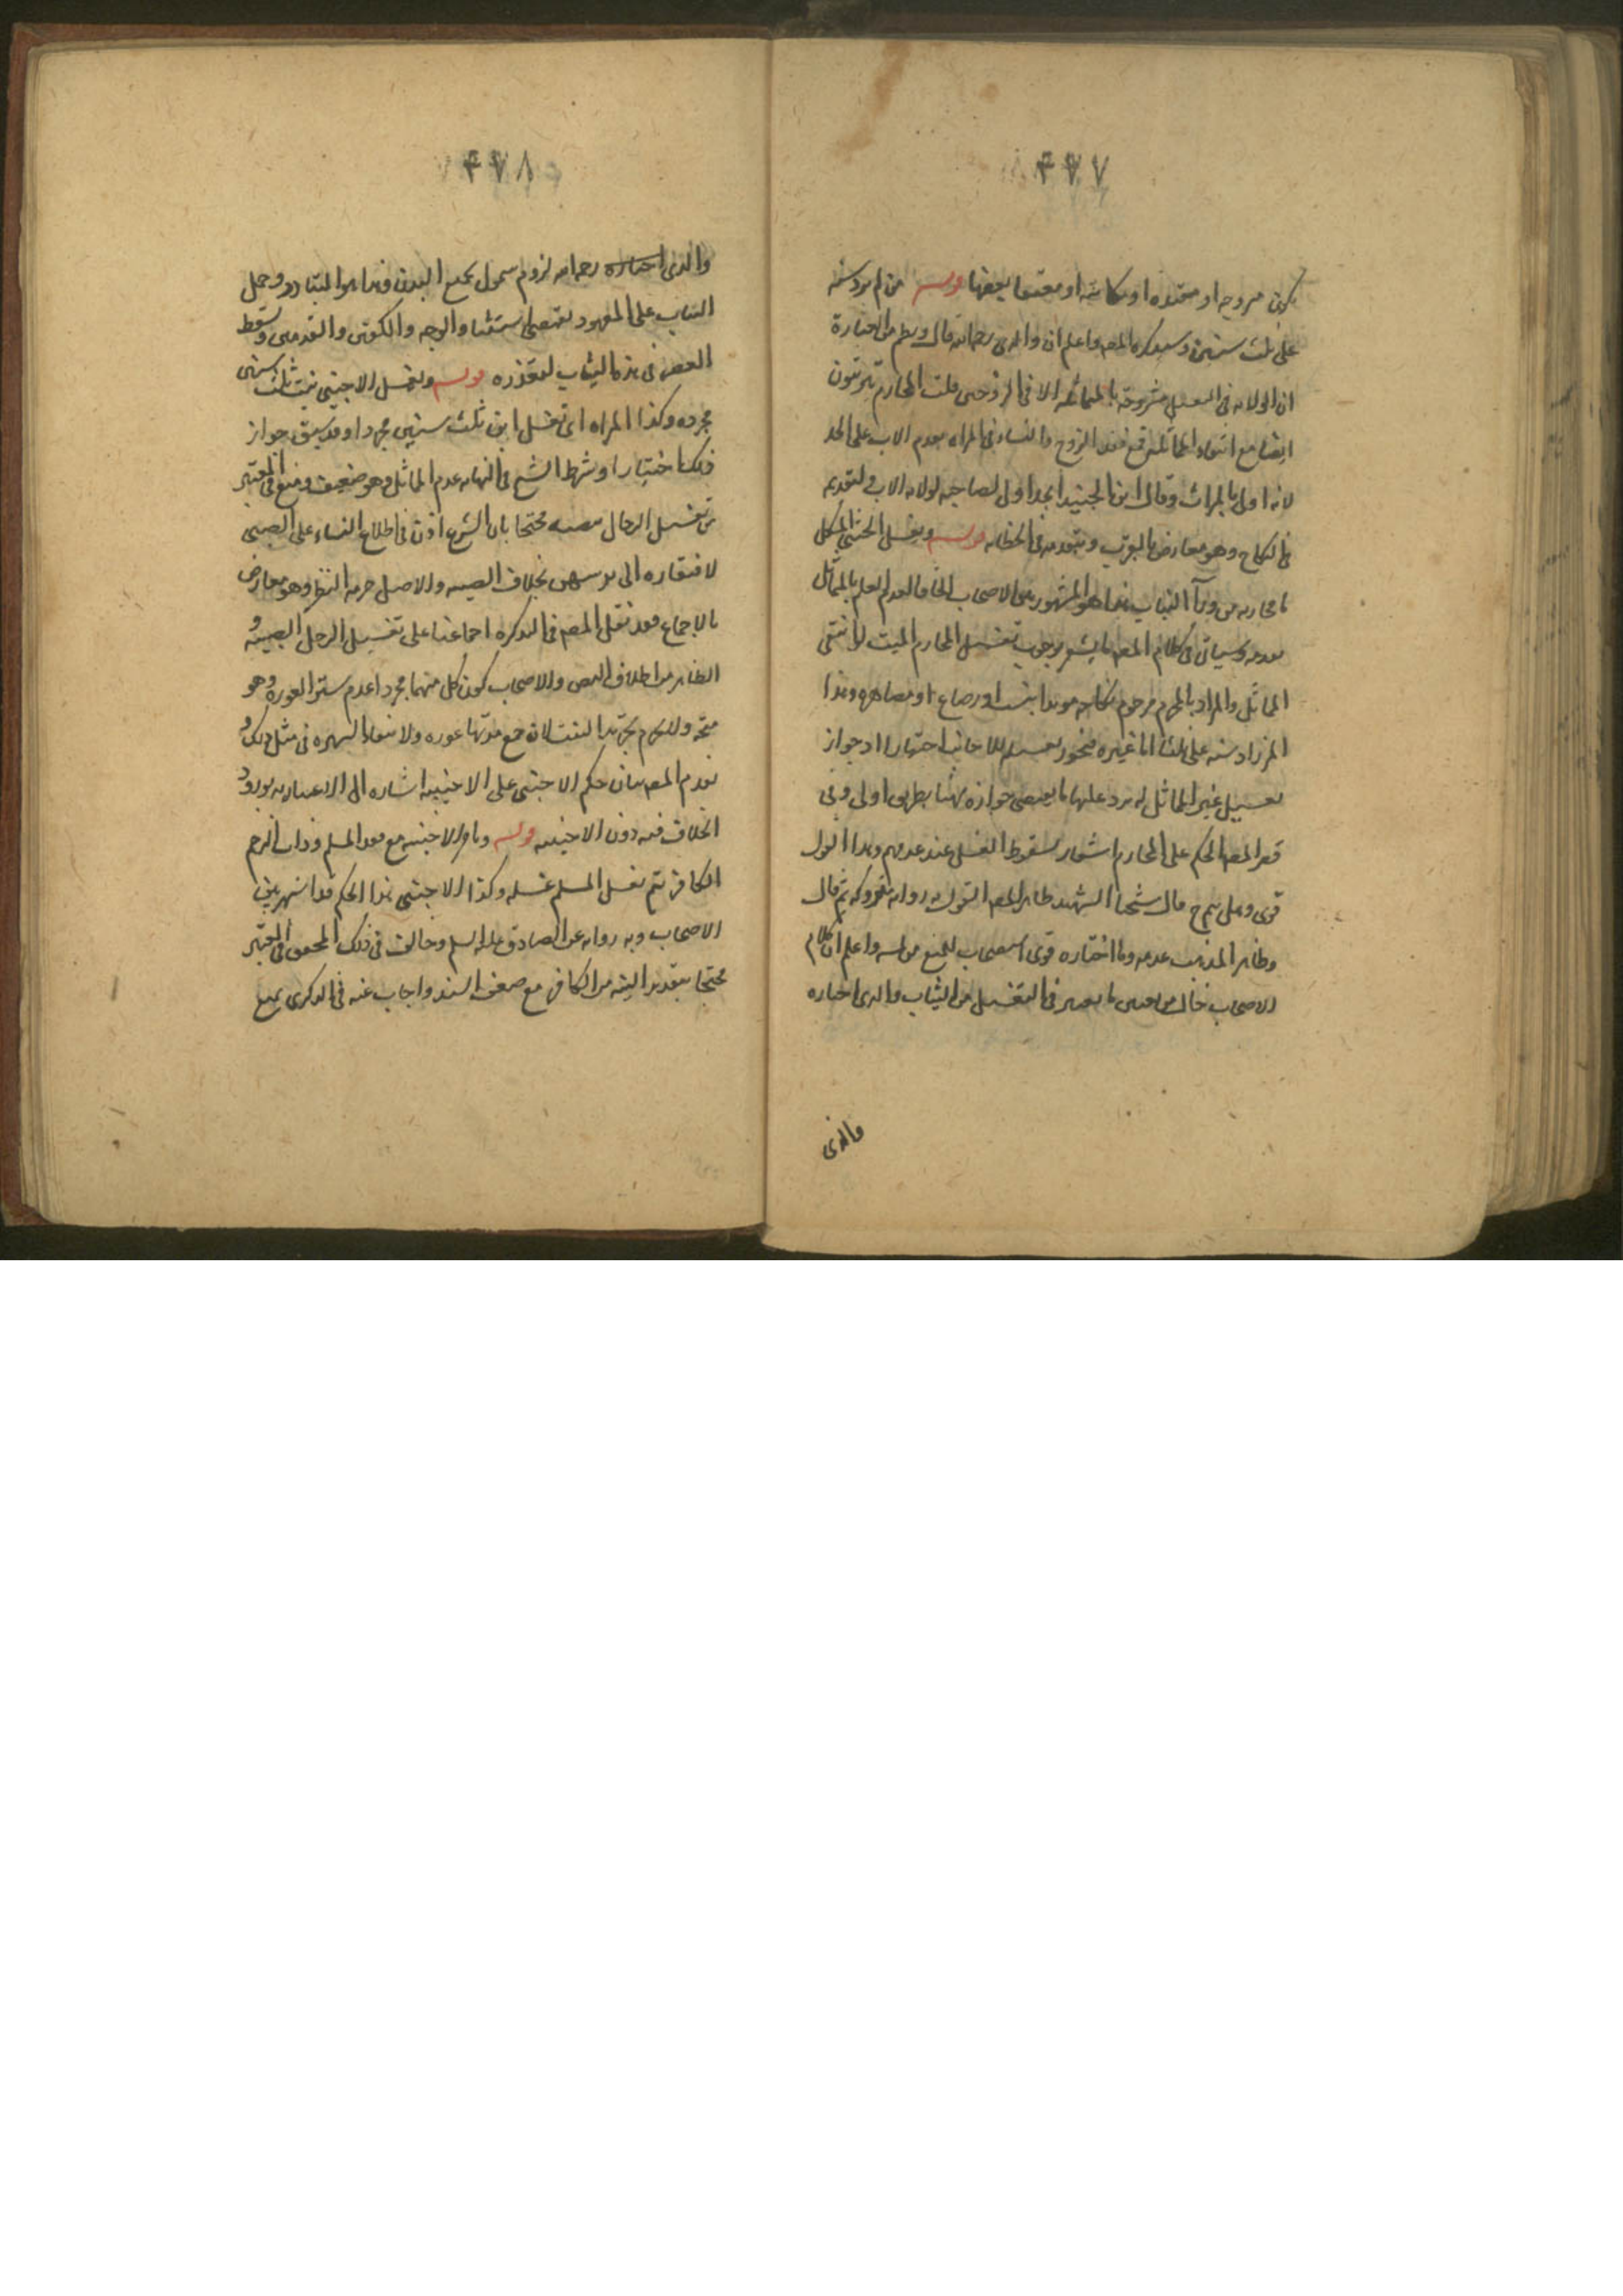 ۴۷۷
يكون مزوجه او معتده او مكاتبة او معتقا بعضها قوله من لم يزد سنه
على ثلث سنين وسيذكره المصه واعلم ان والدى رحمه الله قال ويظهر من العبارة
ان الولاية فى التغسيل مشروطة بالمماثلة الا فى الزوجين قلت المحارم يترتبون
ايضا مع انتفاء المماثل فمع فقد الزوج والنساء فى المراه يقدم الاب على الجد
لانه اولى بالميراث وقال ابن الجنيد الجد اولى لصاحبه لولاية الاب ولتقديمه
فى النكاح وهو معارض بالقرب وبتقدمه فى الحضانه قوله ويغسل الخنثى المشكل
محارمه من ورآ الثياب هذا هو المشهور بين الاصحاب لعدم العلم بالمماثل
بعدمه وسياتى فى كلام المصه ما يشعر بوجوب تغسيل المحارم الميت لو انتفى
المماثل والمراد بالمحرم من حرم نكاحه موبدا بنسب او رضاع او مصاهره وهذا
لمن زاد سنه على ثلث اما غيره فيجوز تغسيله للاجانب اختيارا اذ جواز
تغسيل غير المماثل له يرد عليها ما يقتضى جوازه هنا بطريق اولى وفى
قصر المصه الحكم على المحارم اشعار بسقوط الغسل عند عدمهم وهذا القول
قوى وعلى قال شيخنا الشهيد ظاهر المصه القول به روايه متروكه ثم قال
وظاهر المذهب عدمه وما اختاره قوى استصحاب للمنع من لمسه واعلم ان كلام
الاصحاب خال من تعيين ما يعتبر فى التغسيل من الثياب والذى اختاره
والذى
۴۷۸
والذى اختاره رحمه الله لزوم شمول جميع البدن وهذا هو المتبادر وحمل
الثياب على المعهود يقتضى استثناء الوجه والكفين والقدمين وسقط
العصر فى هذه الثياب لتعذره قوله ويغسل الاجنبى بنت ثلث سنين
مجرده وكذا المراه اى تغسل ابن ثلث سنين مجردا وقد سبق جواز
ذلك اختيارا وشرط الشيخ فى النهايه عدم المماثل وهو ضعيف ومنع فى المعتبر
من تغسيل الرجال الصبيه محتجا بان الشرع اذن فى اطلاع النساء على الصبى
لافتقاره الى تربيتهن بخلاف الصبيه والاصل حرمه النظر وهو معارض
بالاجماع فقد نقل المصه فى التذكره اجماعنا على تغسيل الرجل الصبيه و
الظاهر من اطلاق النص والاصحاب كون كل منهما مجردا عدم ستر العورة وهو
متجه ولا يحرم تجريد البنت لان جميع بدنها عوره ولانتفاء الشهوه فى مثل ذلك و
تقديم المصه بيان حكم الاجنبى على الاجنبيه اشاره الى الاعتبار به بورود
الخلاف فيه دون الاجنبيه قوله وتامر الاجنبيه مع فقد المسلم وذات الرحم
الكافر ثم يغسل المسلم غسله وكذا الاجنبى هذا الحكم قد اشهر بين
الاصحاب وبه روايه عن الصادق عليه السلم وخالف فى ذلك المحقق فى المعتبر
محتجا بتعذر النيه من الكافر مع ضعف السند واجاب عنه فى الذكرى بمنع